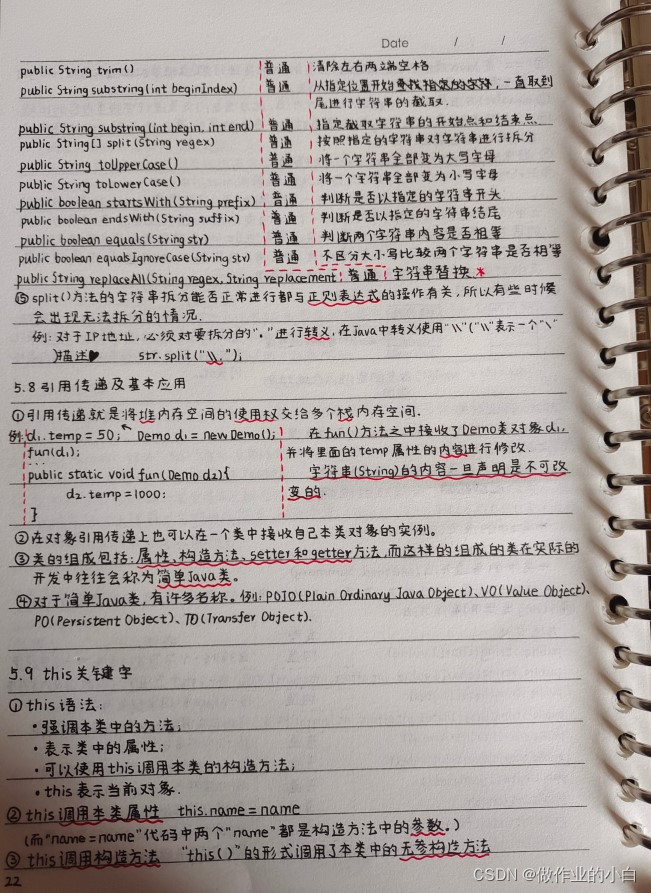 Date / /
public String trim() 普通 清除左右两端空格
public String substring(int beginIndex) 普通 从指定位置开始,一直取到
尾进行字符串的截取.
public String substring(int begin, int end) 普通 指定截取字符串的开始点和结束点
public String[] split(String regex) 普通 按照指定的字符串对字符串进行拆分
public String toUpperCase() 普通 将一个字符串全部变为大写字母
public String toLowerCase() 普通 将一个字符串全部变为小写字母
public boolean startsWith(String prefix) 普通 判断是否以指定的字符串开头
public boolean endsWith(String suffix) 普通 判断是否以指定的字符串结尾
public boolean equals(String str) 普通 判断两个字符串内容是否相等
public boolean equalsIgnoreCase(String str) 普通 不区分大小写比较两个字符串是否相等
public String replaceAll(String regex, String replacement 普通 字符串替换 *
⑮ split()方法的字符串拆分能否正常进行都与正则表达式的操作有关,所以有些时候
会出现无法拆分的情况.
例:对于IP地址,必须对要拆分的"."进行转义,在Java中转义使用"\\"("\\"表示一个"\"
)描述♥ str.split("\\.");
5.8 引用传递及基本应用
①引用传递就是将堆内存空间的使用权交给多个栈内存空间.
例: d1.temp = 50; Demo d1 = new Demo(); 在fun()方法之中接收了Demo类对象d1,
fun(d1); 并将里面的temp属性的内容进行修改.
...
public static void fun(Demo d2){ 字符串(String)的内容一旦声明是不可改
d2.temp = 1000; 变的.
}
②在对象引用传递上也可以在一个类中接收自己本类对象的实例。
③类的组成包括:属性、构造方法、setter和getter方法,而这样的组成的类在实际的
开发中往往会称为简单Java类。
④对于简单Java类,有许多名称。例:POJO(Plain Ordinary Java Object)、VO(Value Object)、
PO(Persistent Object)、TO(Transfer Object).
5.9 this关键字
① this 语法:
·强调本类中的方法;
·表示类中的属性;
·可以使用this调用本类的构造方法;
·this表示当前对象.
② this调用本类属性 this.name = name
(而"name = name"代码中两个"name"都是构造方法中的参数。)
③ this调用构造方法 "this()"的形式调用了本类中的无参构造方法
22
CSDN @做作业的小白